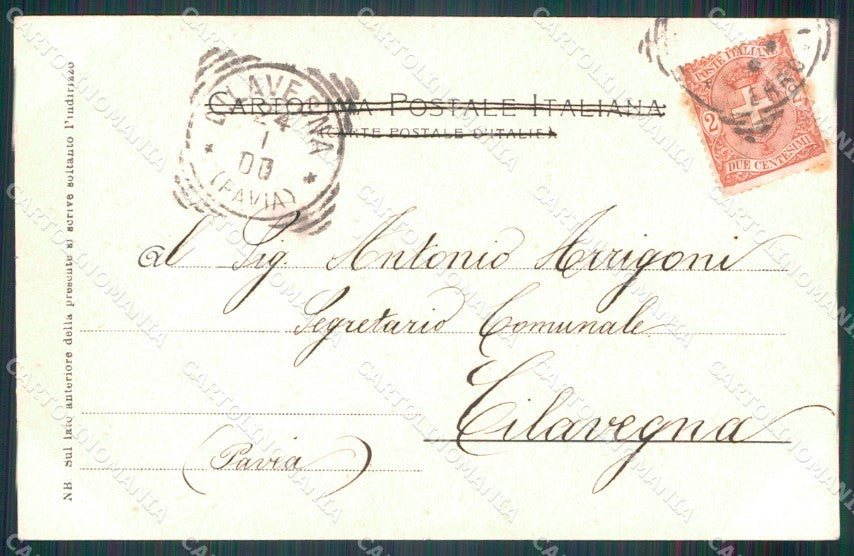 CILAVEGNA
24
1
00
(PAVIA)
CARTOLINA POSTALE ITALIANA
CARTE POSTALE D'ITALIE
POSTE ITALIANE
2
DUE CENTESIMI
Al Sig. Antonio Arrigoni
Segretario Comunale
Cilavegna
(Pavia)
NB Sul lato anteriore della presente si scrive soltanto l'indirizzo
CARTOLINOMANIA